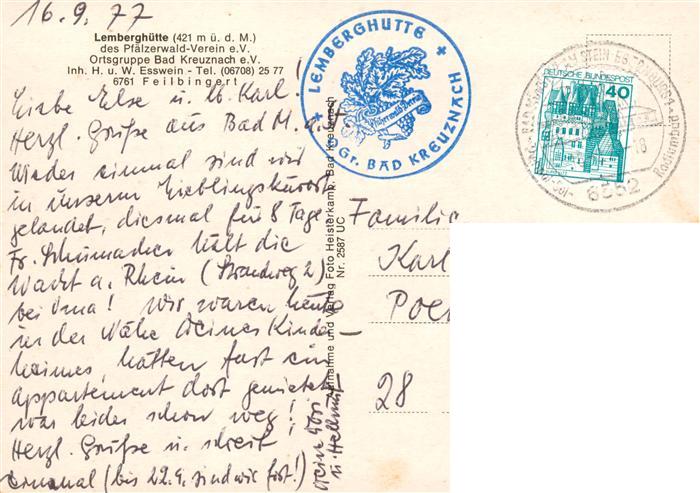 16.9.77
Lemberghütte (421 m ü. d. M.)
des Pfälzerwald-Verein e.V.
Ortsgruppe Bad Kreuznach e.V.
Inh. H. u. W. Esswein - Tel. (06708) 25 77
6761 Feilbingert
Liebe Else u. lb. Karl!
Herzl. Grüße aus Bad M. a. St
Wieder einmal sind wir
in unserm Lieblingskurort
gelandet, diesmal für 8 Tage
Fr. Schumacher hält die
Wacht a. Rhein (Brandweg 2)
bei Oma! Wir waren heute
in der Nähe Deines Kinder-
heimes hatten fast ein
appartement dort gemietet
war leider schon weg!
Herzl. Grüße u. schreib
einmal (bis 22.9. sind wir fort!)
Deine Dori
u. Hellmut
LEMBERGHÜTTE
Pfälzerwald-Verein
O.Gr. BAD KREUZNACH
Aufnahme und Verlag Foto Heisterkamp, Bad Kreuznach
Nr. 2587 UC
DEUTSCHE BUNDESPOST
40
BAD MÜNSTER AM STEIN-EBERNBURG
Radiumbad
18
6552
Familie
Karl
Poe
28